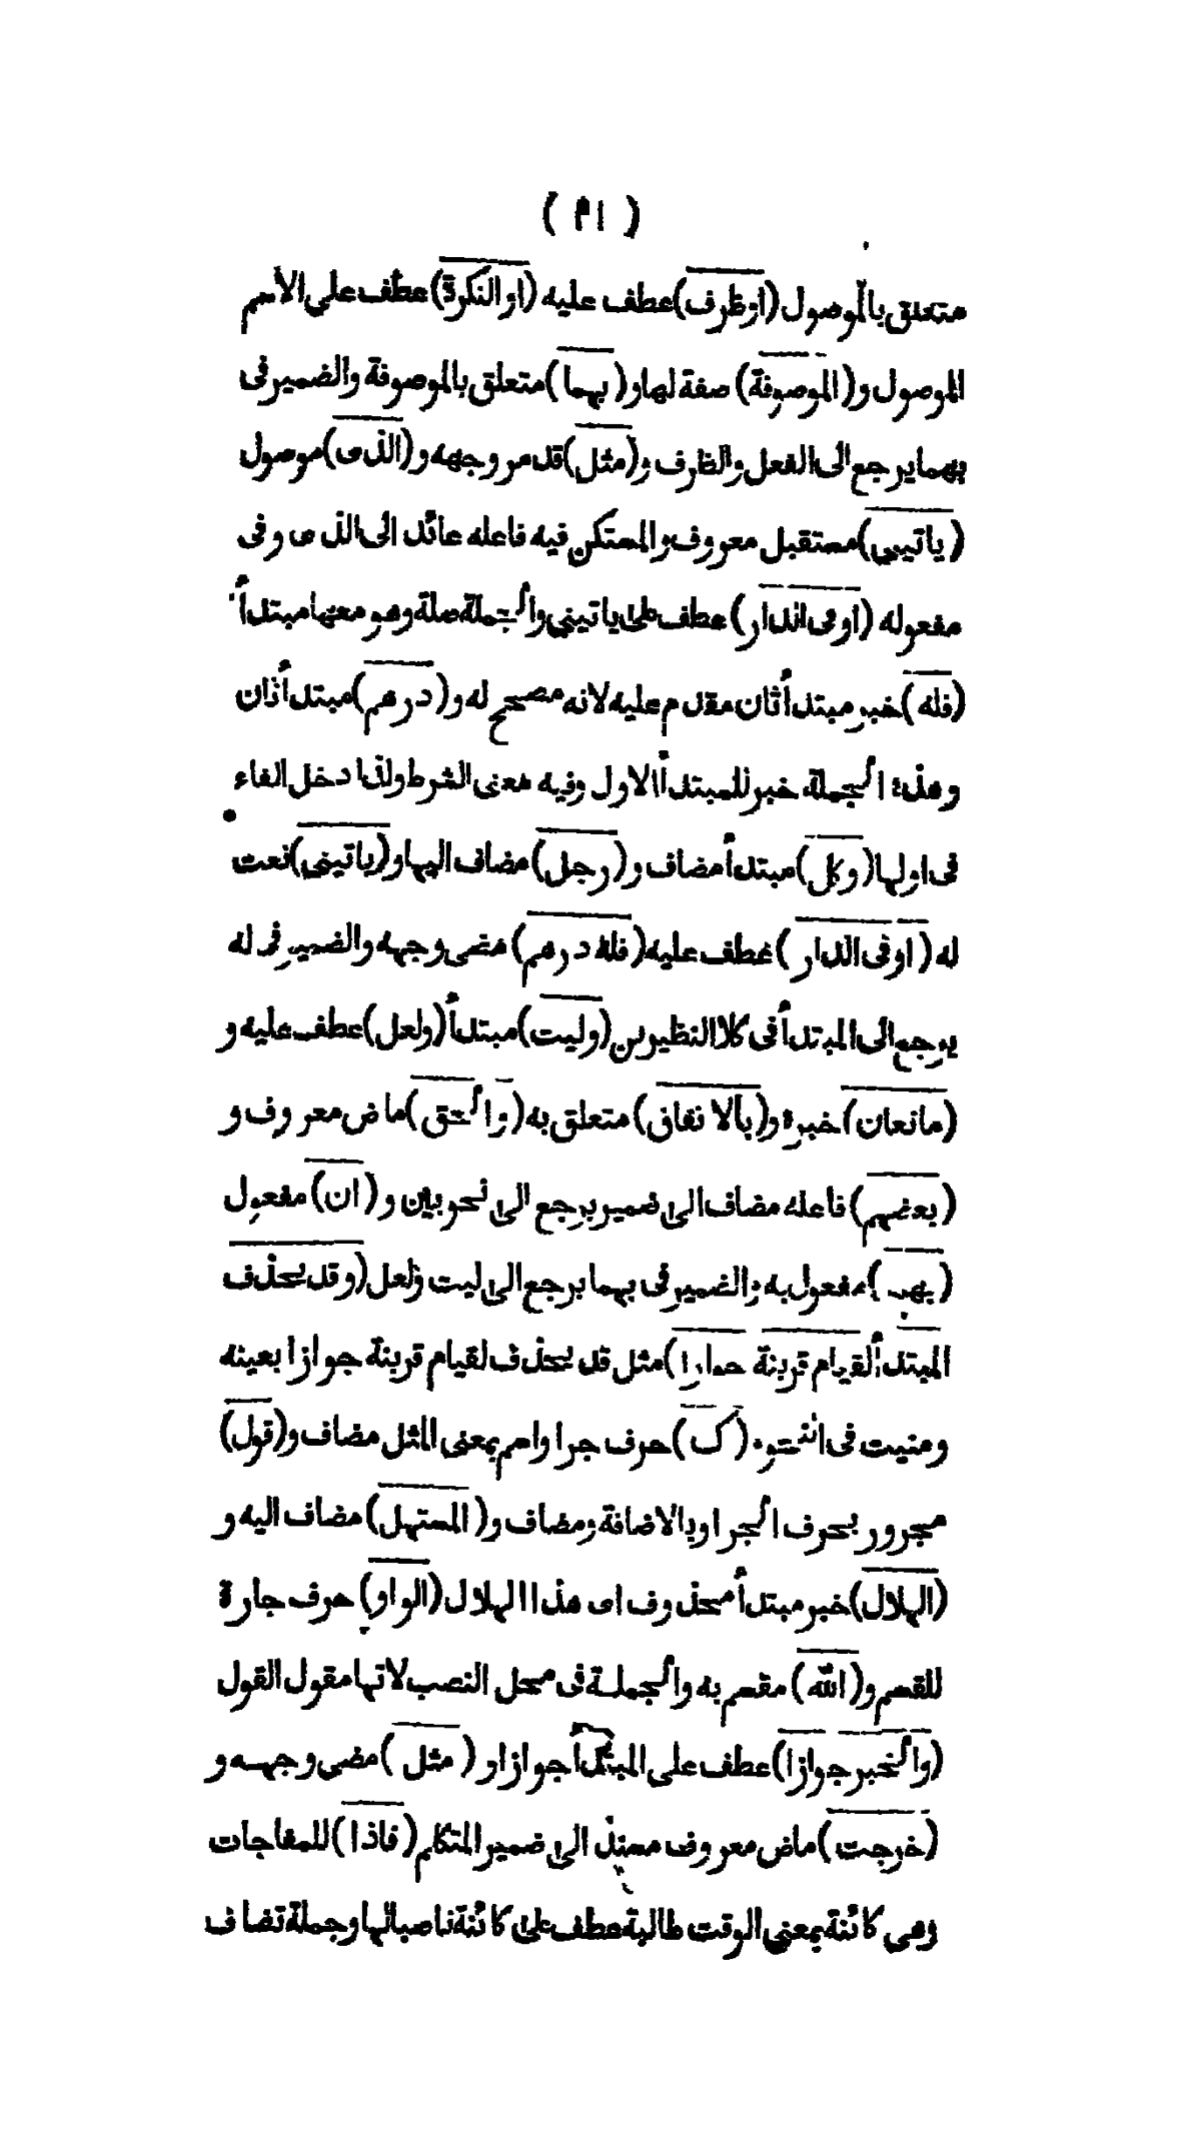 ( ٣١ )
متعلق بالموصول (او ظرف) عطف عليه (او النكرة) عطف على الاسم
الموصول و(الموصوفة) صفة لها و (بهما) متعلق بالموصوفة والضمير فى
بهما يرجع الى الفعل والظرف و(مثل) قد مر وجهه و (الذى) موصول
(ياتيني) مستقبل معروف والمستكن فيه فاعله عائد الى الذى و فى
مفعوله (او فى الدار) عطف على ياتيني والجملة صلة وهو معها مبتدأ
(فله) خبر مبتدأ ثان مقدم عليه لانه مصحح له و (درهم) مبتدأ ثان
وهذه الجملة خبر للمبتدأ الاول وفيه معنى الشرط ولذا دخل الفاء
فى اولها (وكل) مبتدأ مضاف و (رجل) مضاف اليها و (ياتينى) نعت
له (او فى الدار) عطف عليه (فله درهم) مضى وجهه والضمير فى له
يرجع الى المبتدأ فى كلا النظيرين (وليت) مبتدأ (ولعل) عطف عليه و
(مانعان) خبره و(بالاتفاق) متعلق به (والحق) ماض معروف و
(بعضهم) فاعله مضاف الى ضمير يرجع الى نحويين و (ان) مفعول
(بهما) مفعول به والضمير فى بهما يرجع الى ليت ولعل (وقد يحذف
المبتدأ لقيام قرينة جوازا) مثل قد يحذف لقيام قرينة جوازا بعينه
ومنيت فى النحو (ك) حرف جر او اسم بمعنى المثل مضاف و(قول)
مجرور بحرف الجر او بالاضافة ومضاف و( المستهل) مضاف اليه و
(الهلال) خبر مبتدأ محذوف اى هذا الهلال (الواو) حرف جارة
للقسم و(الله) مقسم به والجملة فى محل النصب لانها مقول القول
(والخبر جوازا) عطف على المبتدأ جوازا و ( مثل ) مضى وجهه و
(خرجت) ماض معروف مسند الى ضمير المتكلم (فاذا) للمفاجات
وهى كائنة بمعنى الوقت طالبة عطف على كائنة ناصبا لها وجملة تضاف